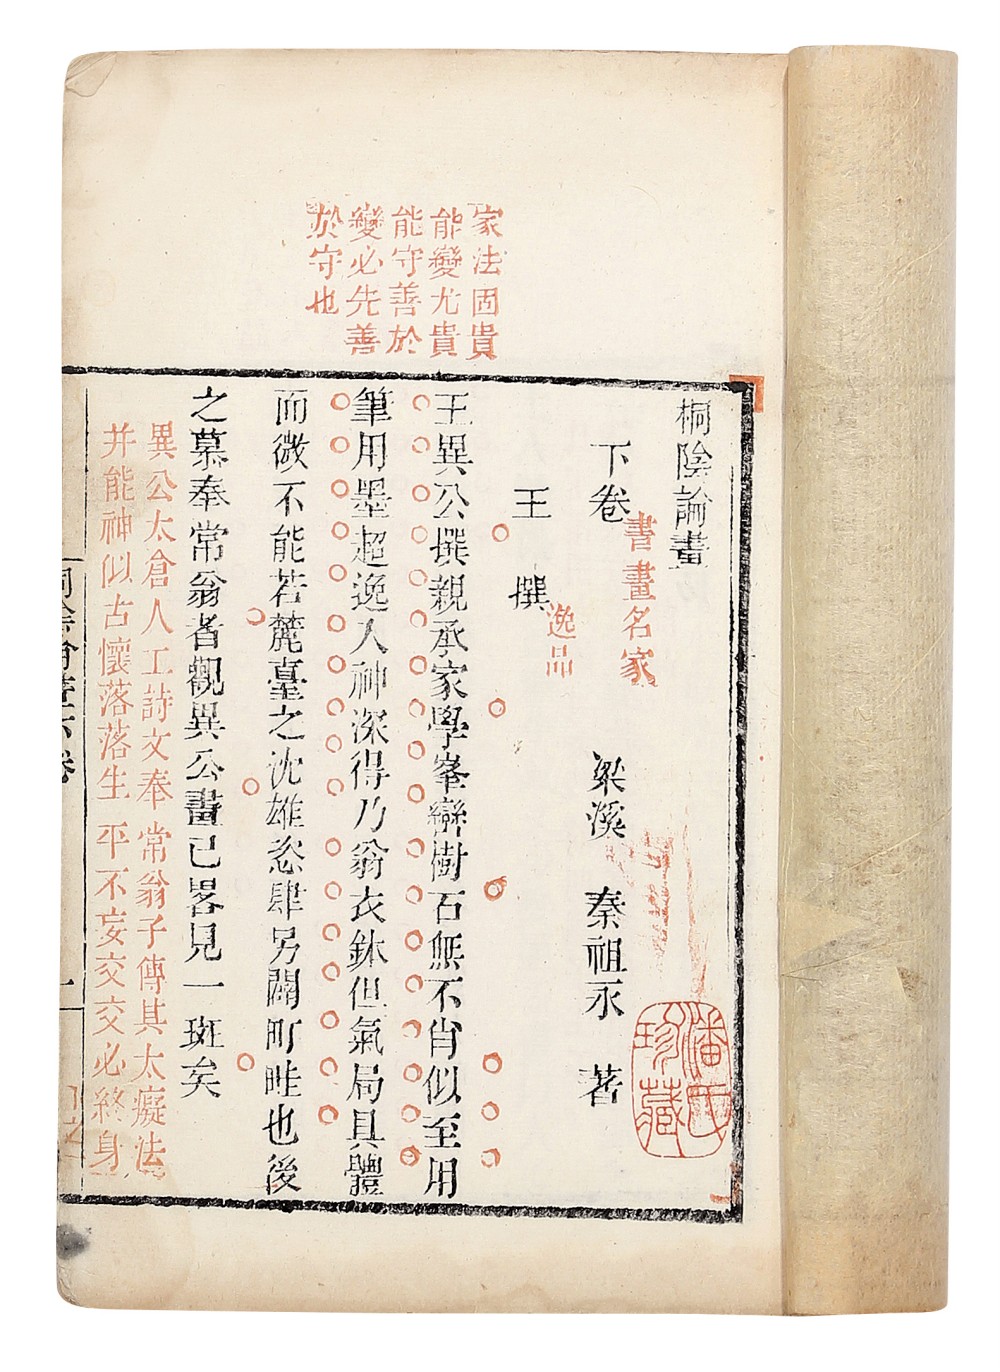 家法固貴
能變尤貴
能守善於
變必先善
於守也
桐陰論畫
書畫名家
下卷
梁溪 秦祖永 著
潘氏
珍藏
逸品
王撰
王異公撰親承家學峯巒樹石無不肖似至用
筆用墨超逸入神深得乃翁衣鉢但氣局具體
而微不能若麓臺之沈雄恣肆另闢町畦也後
之慕奉常翁者觀異公畫已畧見一斑矣
異公太倉人工詩文奉常翁子傳其太癡法
并能神似古懷落落生平不妄交交必終身